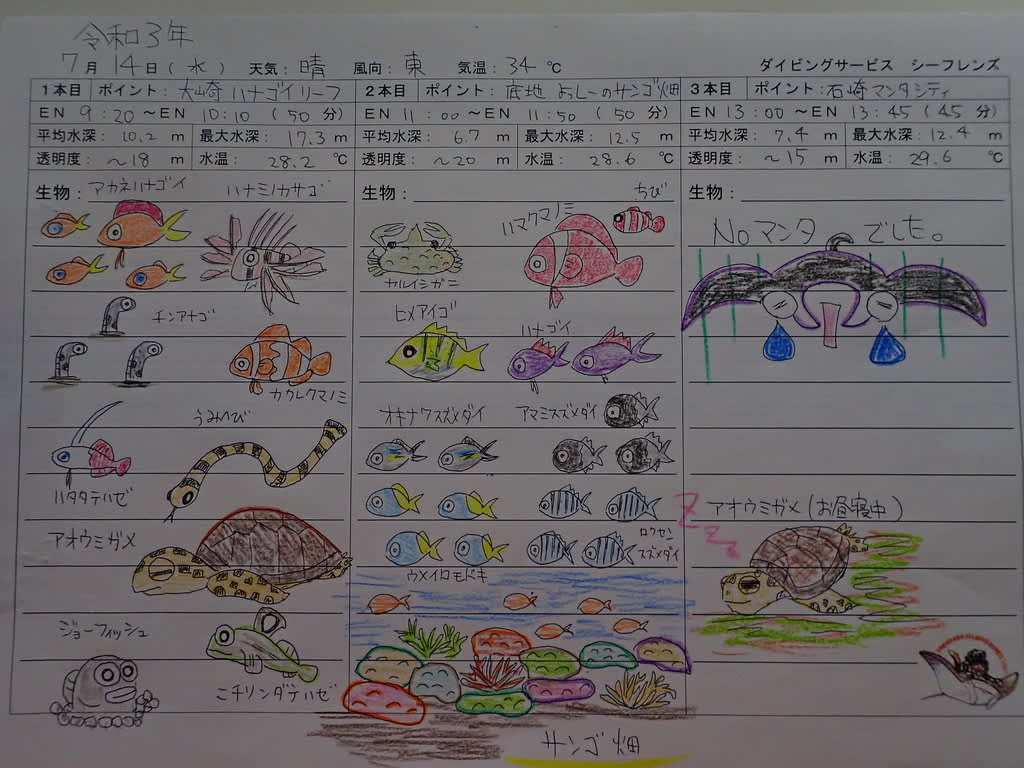 令和3年
7月 14日(水) 天気: 晴 風向: 東 気温: 34 ℃ ダイビングサービス シーフレンズ
1本目 ポイント: 大崎 ハナゴイリーフ
EN 9:20 ～EN 10:10 (50 分)
平均水深: 10.2 m 最大水深: 17.3 m
透明度: ～18 m 水温: 28.2 ℃
生物: アカネハナゴイ ハナミノカサゴ
チンアナゴ
カクレクマノミ
うみへび
ハタタテハゼ
アオウミガメ
ジョーフィッシュ
こチリンダテハゼ
2本目 ポイント: 底地 よっしーのサンゴ畑
EN 11:00 ～EN 11:50 (50 分)
平均水深: 6.7 m 最大水深: 12.5 m
透明度: ～20 m 水温: 28.6 ℃
生物: ちび
ハマクマノミ
カルイシガニ
ヒメアイゴ
ハナゴイ
オキナワスズメダイ アマミスズメダイ
ロクセン
スズメダイ
ウメイロモドキ
サンゴ畑
3本目 ポイント: 石崎 マンタシティ
EN 13:00 ～EN 13:45 (45 分)
平均水深: 7.4 m 最大水深: 12.4 m
透明度: ～15 m 水温: 29.6 ℃
生物:
No マンタ でした。
アオウミガメ (お昼寝中)
Z Z Z